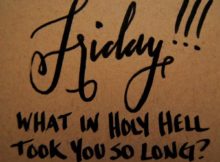 Friday!!!
WHAT IN HOLY HELL
TOOK YOU SO LONG?